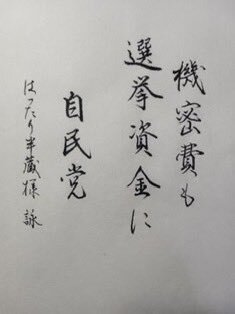 機密費も
選挙資金に
自民党
はったり半蔵様 詠